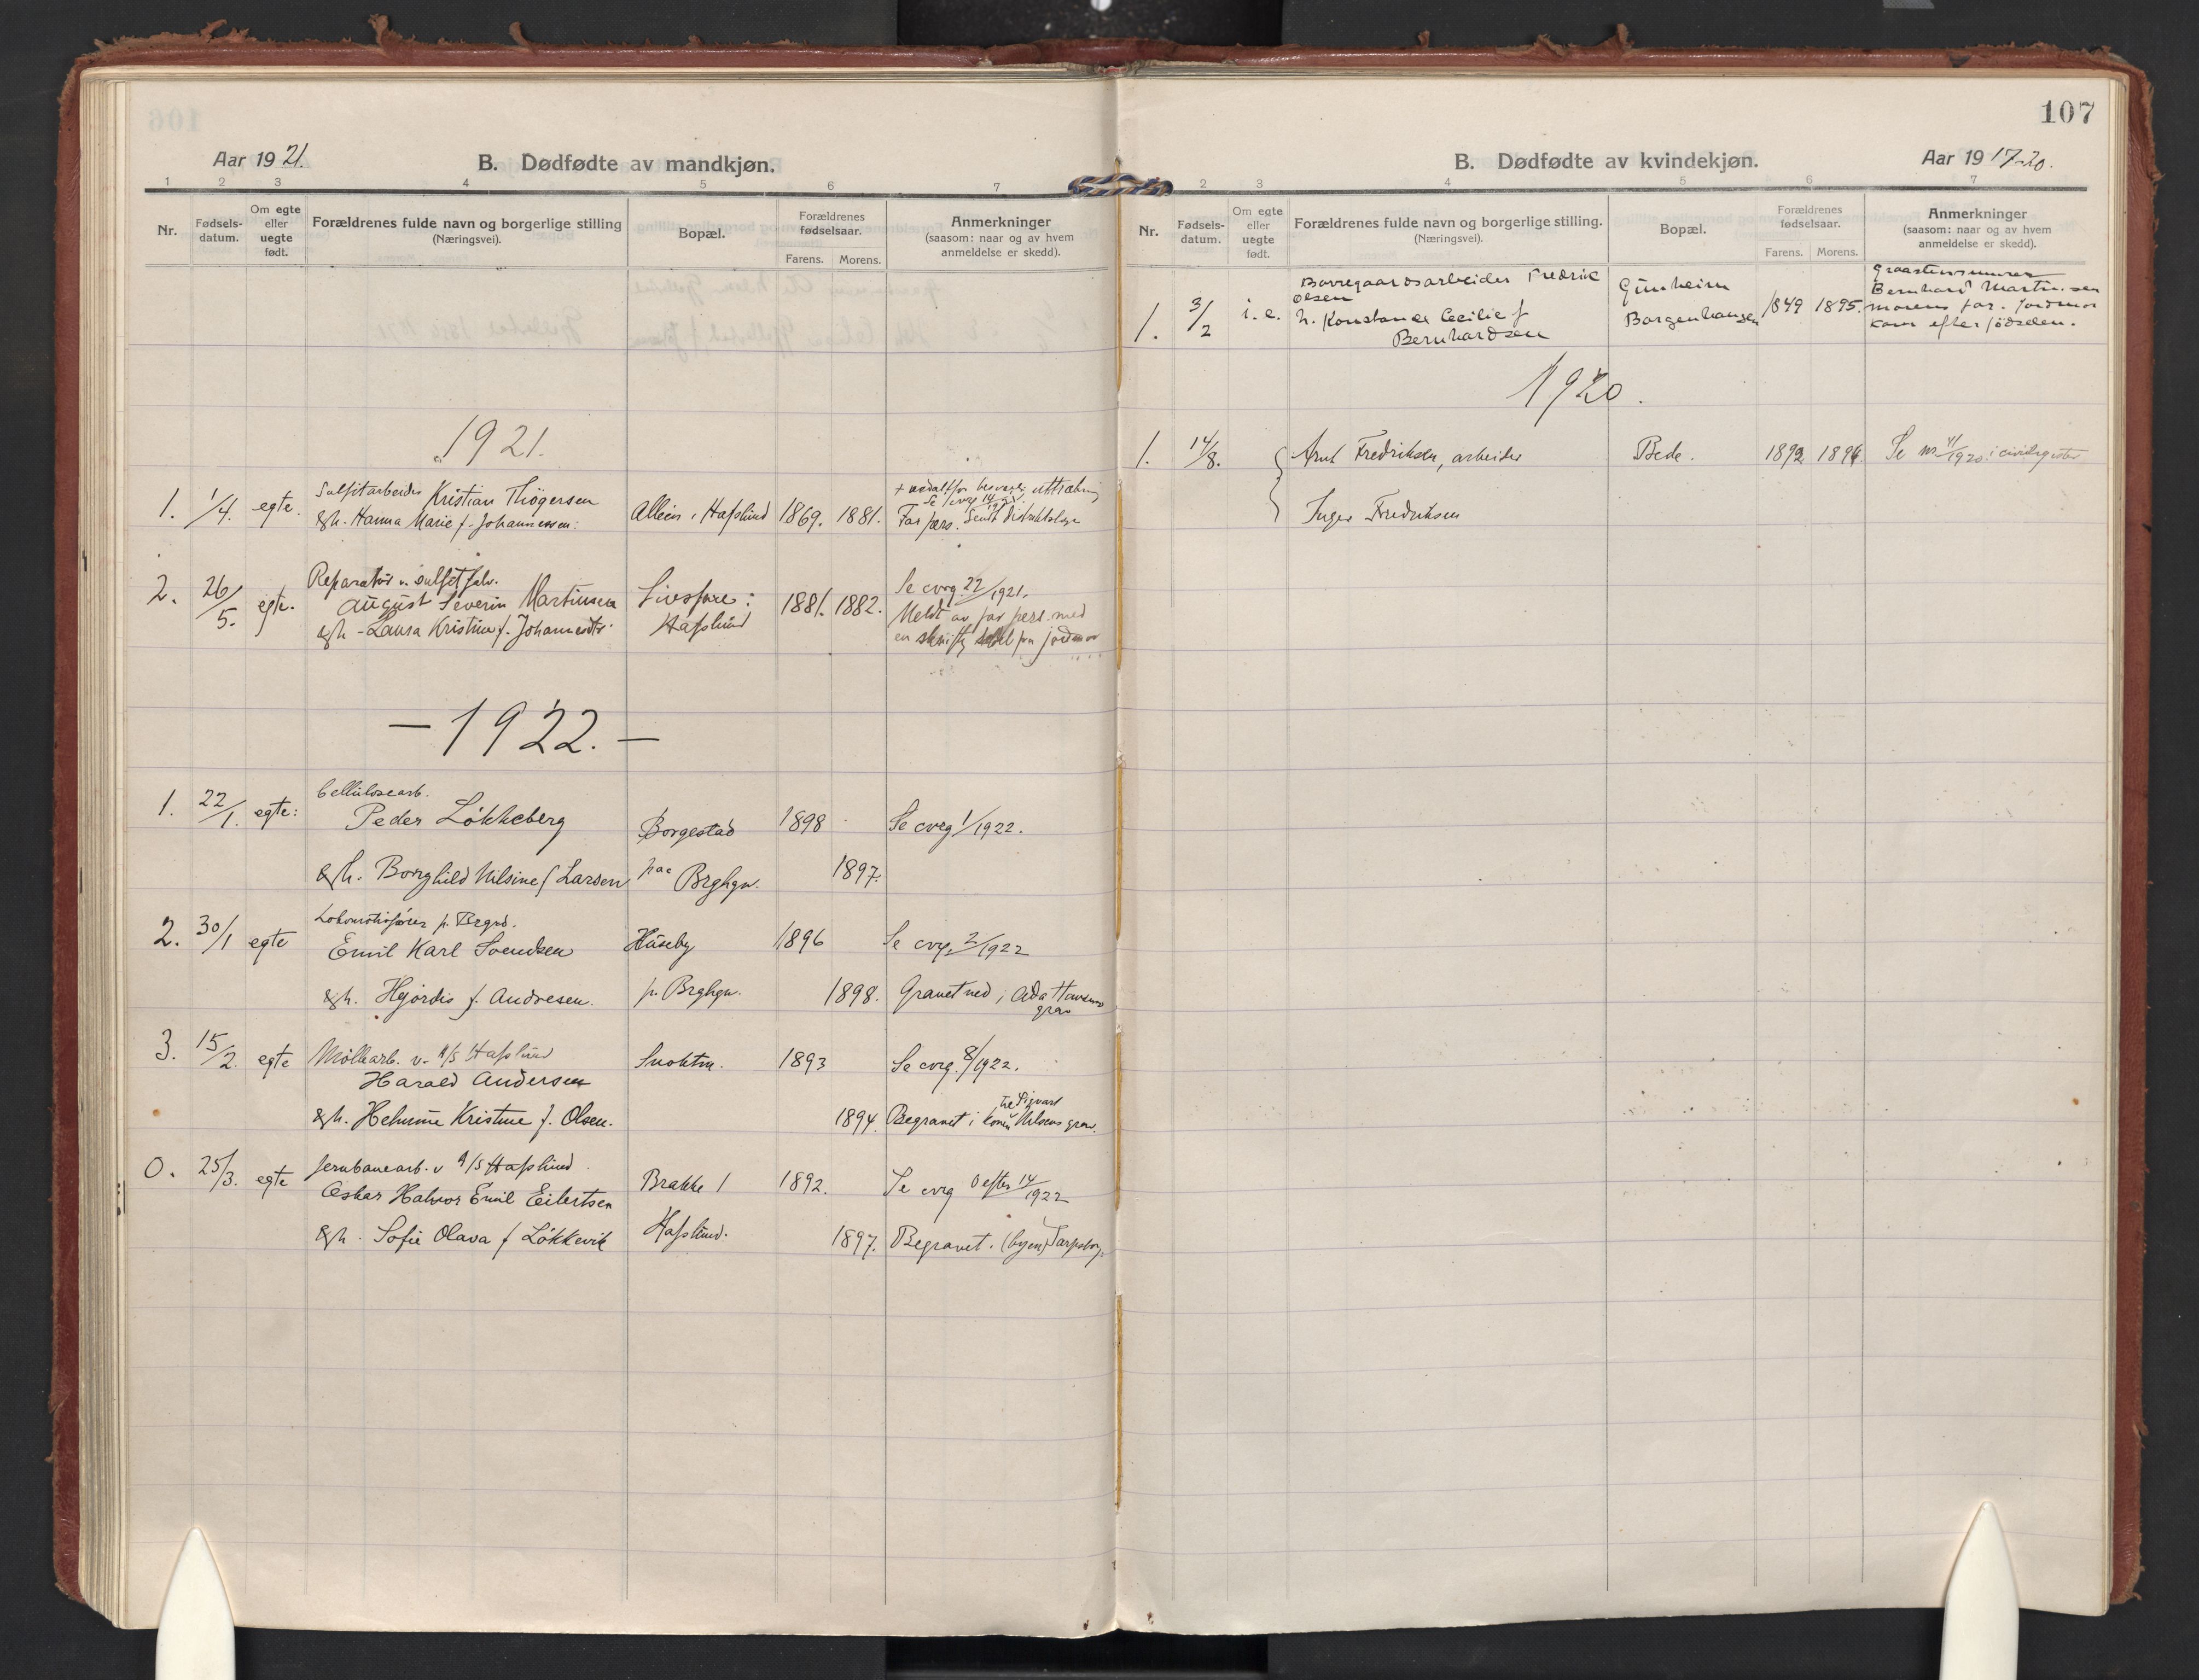 Aar 1921.
B. Dødfødte av mandkjøn.
1 2 3 4 5 6 7
Nr.
Fødsels-
datum.
Om egte
eller
uegte
født.
Forældrenes fulde navn og borgerlige stilling
(Næringsvei).
Bopæl.
Forældrenes
fødselsaar.
Farens. Morens.
Anmerkninger
(saasom: naar og av hvem
anmeldelse er skedd).
1921.
1. 1/4. egte. Sulfitarbeider Kristian Thögersen
&h. Hanna Marie f. Johannessen. Hafslund 1869. 1881. Far pers.
2. 26/5. egte. Reparatör v. sulfitfabr.
August Severin Martinsen
&h - Laura Kristine f. Johannesdtr.
Hafslund 1881. 1882.
Se cvrg. 22/1921.
Meldt av far pers. med
en skriftlig fra jordmor
— 1922. —
1. 22/1. egte: Cellulosearb.
Peder Lökkeberg Borgestad 1898 Se cvrg 1/1922.
&h. Borghild Nilsine f Larsen paa Brghgn. 1897.
2. 30/1 egte Lokomotivförer p. Brgrd.
Emil Karl Svendsen Huseby 1896 Se cvrg. 2/1922
&h. Hjördis f. Andresen. p. Brghgn. 1898. Gravet ned i Ada
grav
3. 15/2. egte Möllearb. v. A/S Hafslund
Harald Andersen 1893 Se cvrg. 8/1922.
&h. Helmine Kristine f. Olsen. 1894. Begravet i Sigvart Nilsens grav.
0. 25/3. egte Jernbanearb. v A/S Hafslund
Oskar Halvor Emil Eilertsen Brakke 1 1892. Se cvrg 0 efter 14/1922
&h. Sofie Olava f Lökkevik Hafslund. 1897. Begravet i (byen) Sarpsborg.
107
B. Dødfødte av kvindekjøn.
Aar 1917-20.
2 3 4 5 6 7
Nr.
Fødsels-
datum.
Om egte
eller
uegte
født.
Forældrenes fulde navn og borgerlige stilling.
(Næringsvei).
Bopæl.
Forældrenes
fødselsaar.
Farens. Morens.
Anmerkninger
(saasom: naar og av hvem
anmeldelse er skedd).
1. 3/2 Borregaardsarbeider Fredrik
Olsen
h. Konstance Cecilie f
Bernhardsen
Borgenhaugen 1849 1895.
Bernhard Martinsen
morens far. Jordmor
kom efter födselen.
1920.
1. 14/8. Arnt Fredriksen, arbeider Bede. 1892 1894 Se nr 41/1920 i civilregister
Inger Fredriksen